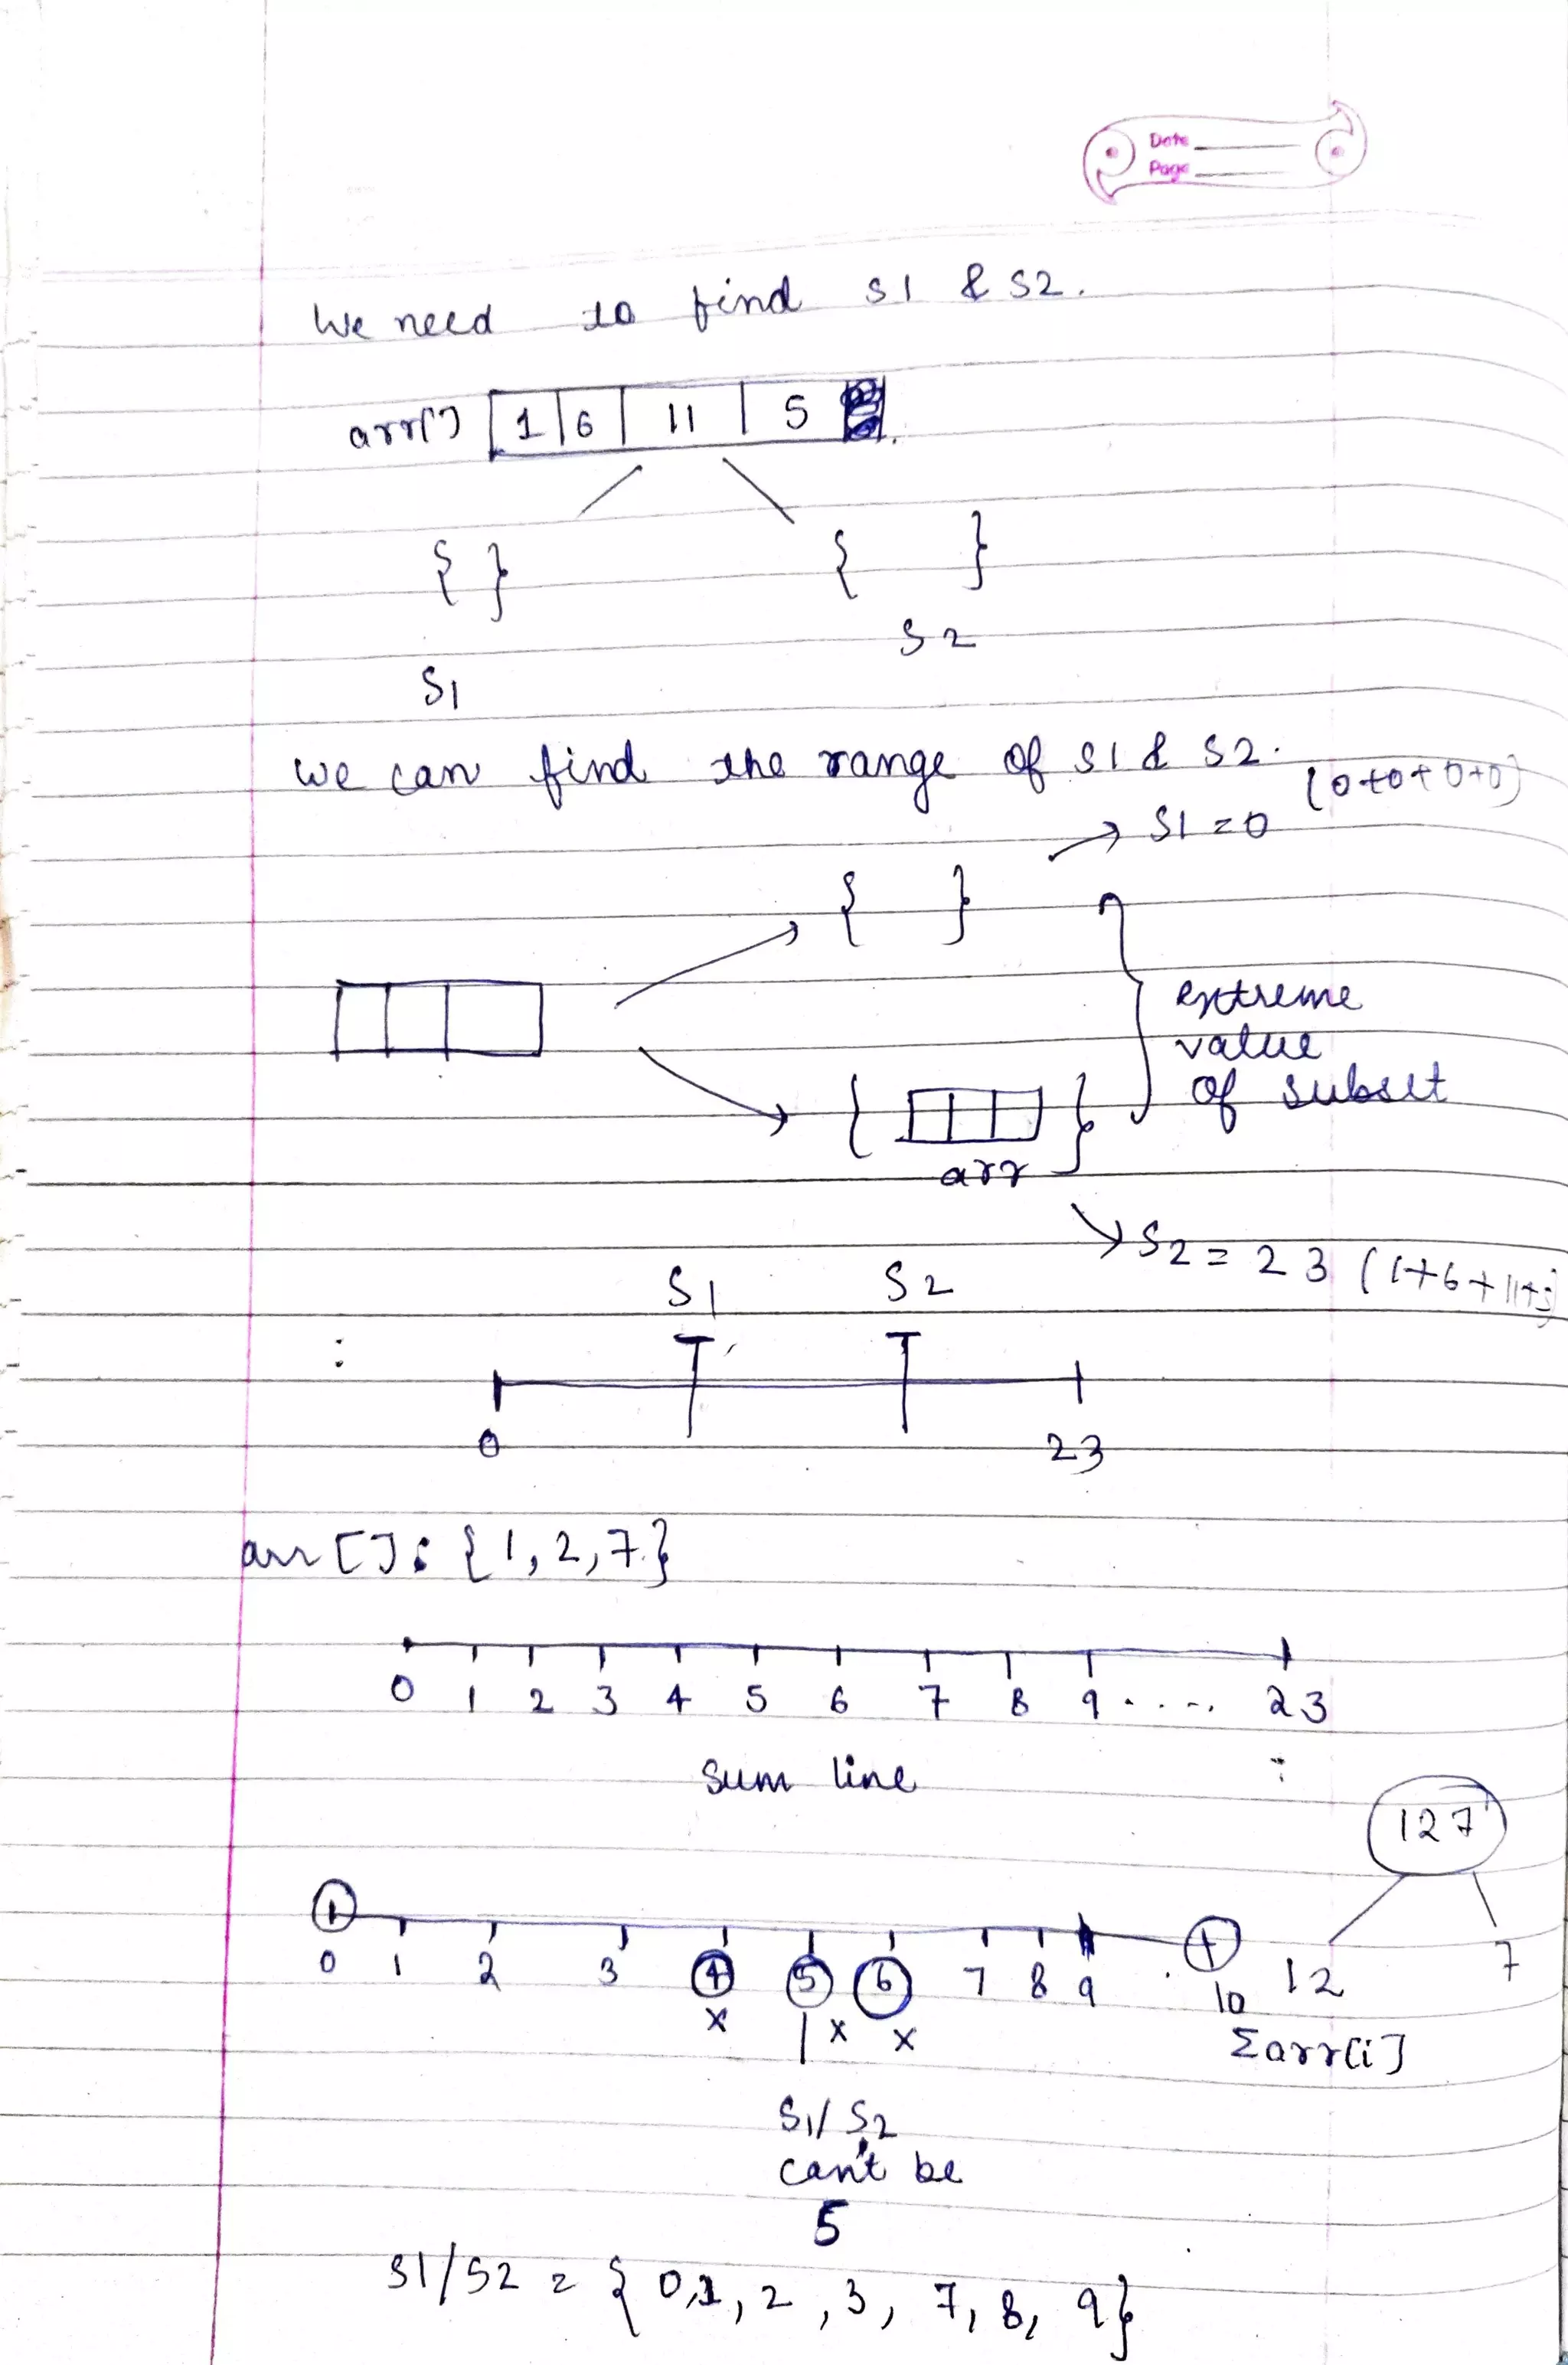 Date
Page
We need to find S1 & S2.
arr[] 1 6 11 5
{ } { }
S2
S1
we can find the range of S1 & S2.
(0+0+0+0)
S1 = 0
{ }
extreme
value
of subset
{ }
arr
S2 = 23 (1+6+11+5)
S1 S2
:
0 23
arr[]: {1, 2, 7}
0 1 2 3 4 5 6 7 8 9 ..... 23
sum line
127
0 1 2 3 4 5 6 7 8 9 . 10 12 7
x x x
Σarr[i]
S1/S2
can't be
5
S1/S2 = {0,1, 2, 3, 7, 8, 9}